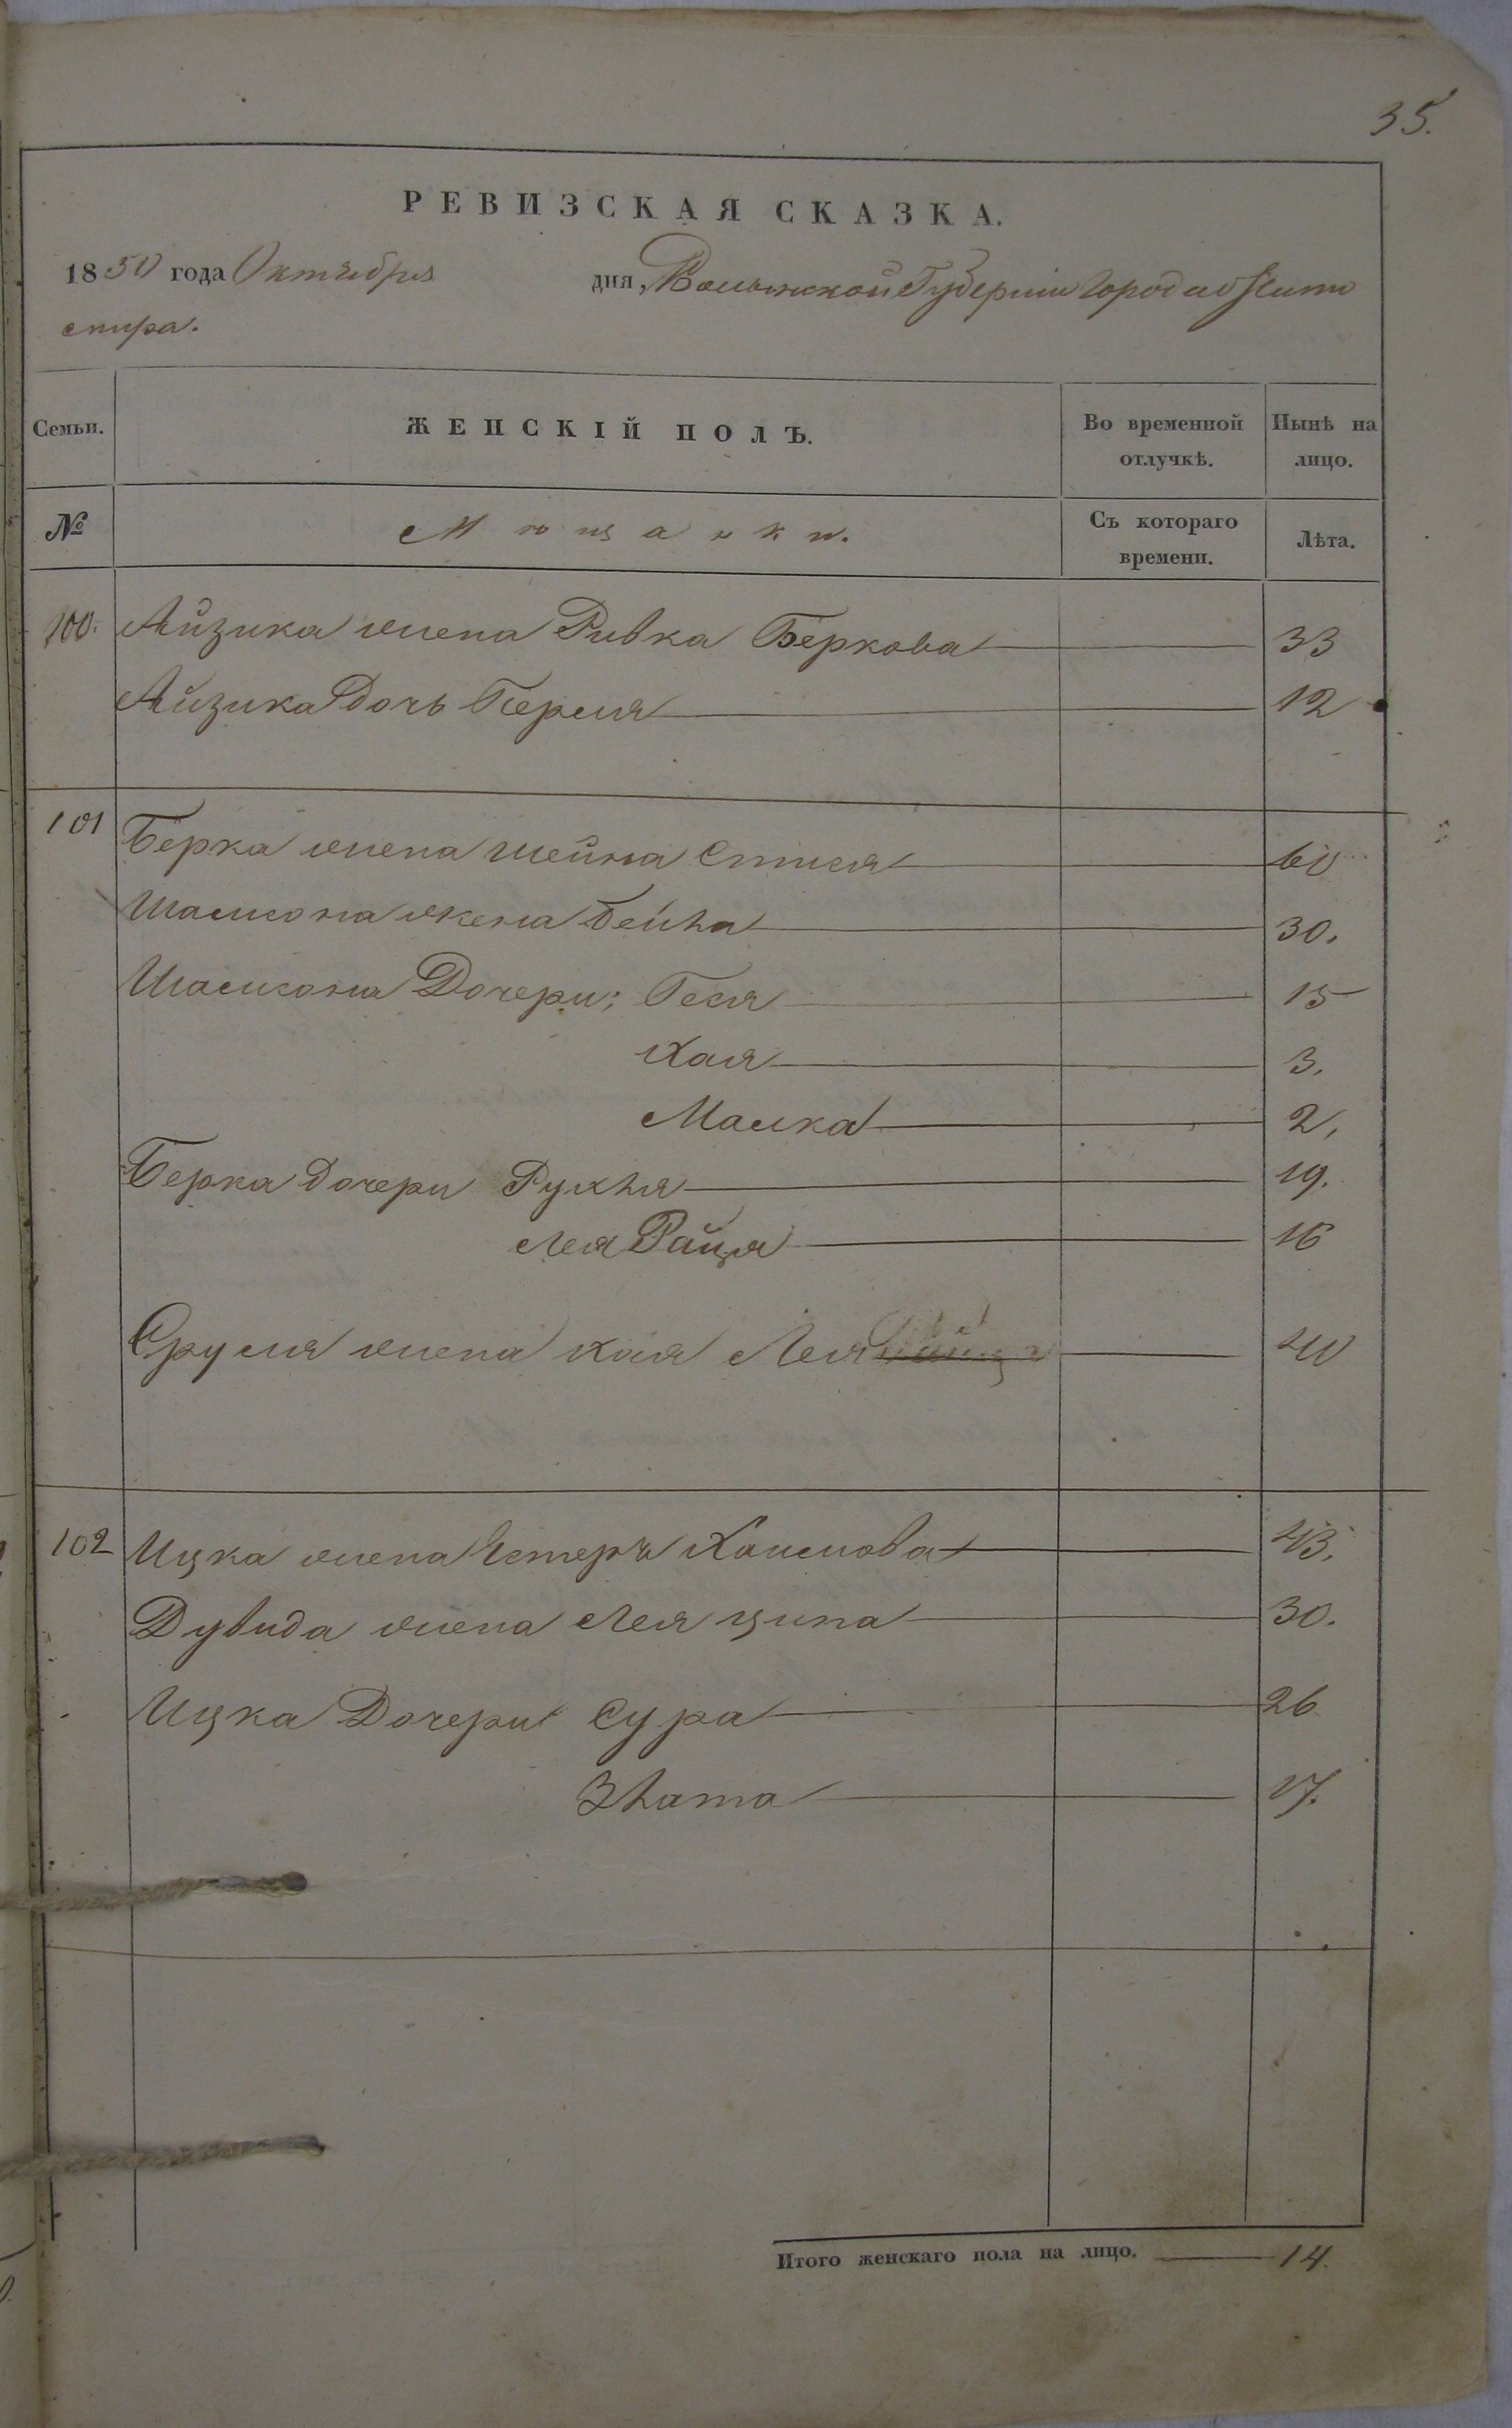 35.
РЕВИЗСКАЯ СКАЗКА.
1850 года Октября дня, Волынской Губерніи Города Жито
мира.
Семьи. ЖЕНСКІЙ ПОЛЪ. Во временной отлучкѣ. Нынѣ на лицо.
№ Мѣщанки. Съ котораго времени. Лѣта.
100. Айзика жена Ривка Беркова 33
Айзика Дочь Перля 12
101 Берка жена шейна 60
Шамсона жена Бейла 30.
Шамсона Дочери: Геся 15
Хая 3.
Малка 2,
Берка Дочери Рухля 19.
Лея Райця 16
Сруля жена Хая Лея 40
102 Ицка жена Естеръ Хаимова 43.
Дувида жена Лея ципа 30.
Ицка Дочери Сура 26
Злата 17.
Итого женскаго пола на лицо. 14.